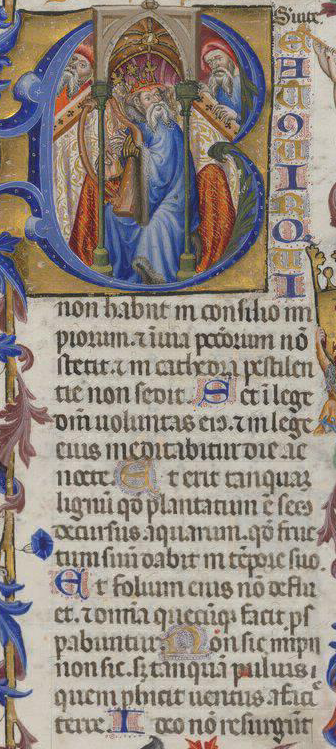 B
EATUS
UIR
QUI
non habiit in consilio im
piorum. ⁊ i uia pccōrum nō
stetit. ⁊ in cathedra pestilen
tie non sedit. Set i lege
dnī uoluntas eiꝰ. ⁊ in lege
eius meditabitur die ac
nocte. Et erit tanquaȝ
lignū qđ plantatum ē secꝰ
decursus aquarum. qđ fruc
tum suū dabit in tēpore suo.
Et folium eius nō deflu
et. ⁊ omīa quecūqꝫ faciet ꝓs
pabuntur. Non sic impii
non sic. sꝫ tanquā puluis
quem ꝓhicit uentus a faci
terre. Ideo nō resurgūt